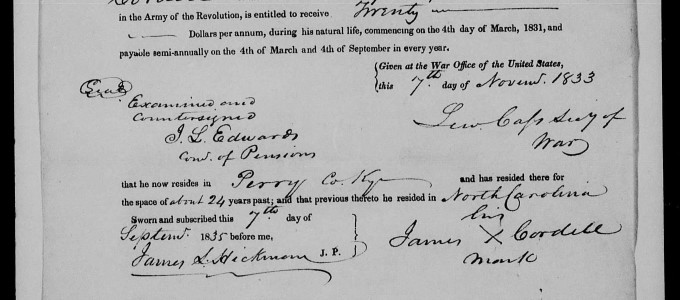 in the Army of the Revolution, is entitled to receive Twenty
Dollars per annum, during his natural life, commencing on the 4th day of March, 1831, and
payable semi-annually on the 4th of March and 4th of September in every year.
Given at the War Office of the United States,
this 7th day of Novemr. 1833
Seal
Examined and
Countersigned
J. L. Edwards
Com. of Pensions
Lew. Cass Secy of
War
that he now resides in Perry Co. Ky and has resided there for
the space of about 24 years past; and that previous thereto he resided in North Carolina
Sworn and subscribed this 7th day of
Septemr. 1835 before me,
James L. Hickman J. P.
his
James X Cordell
mark